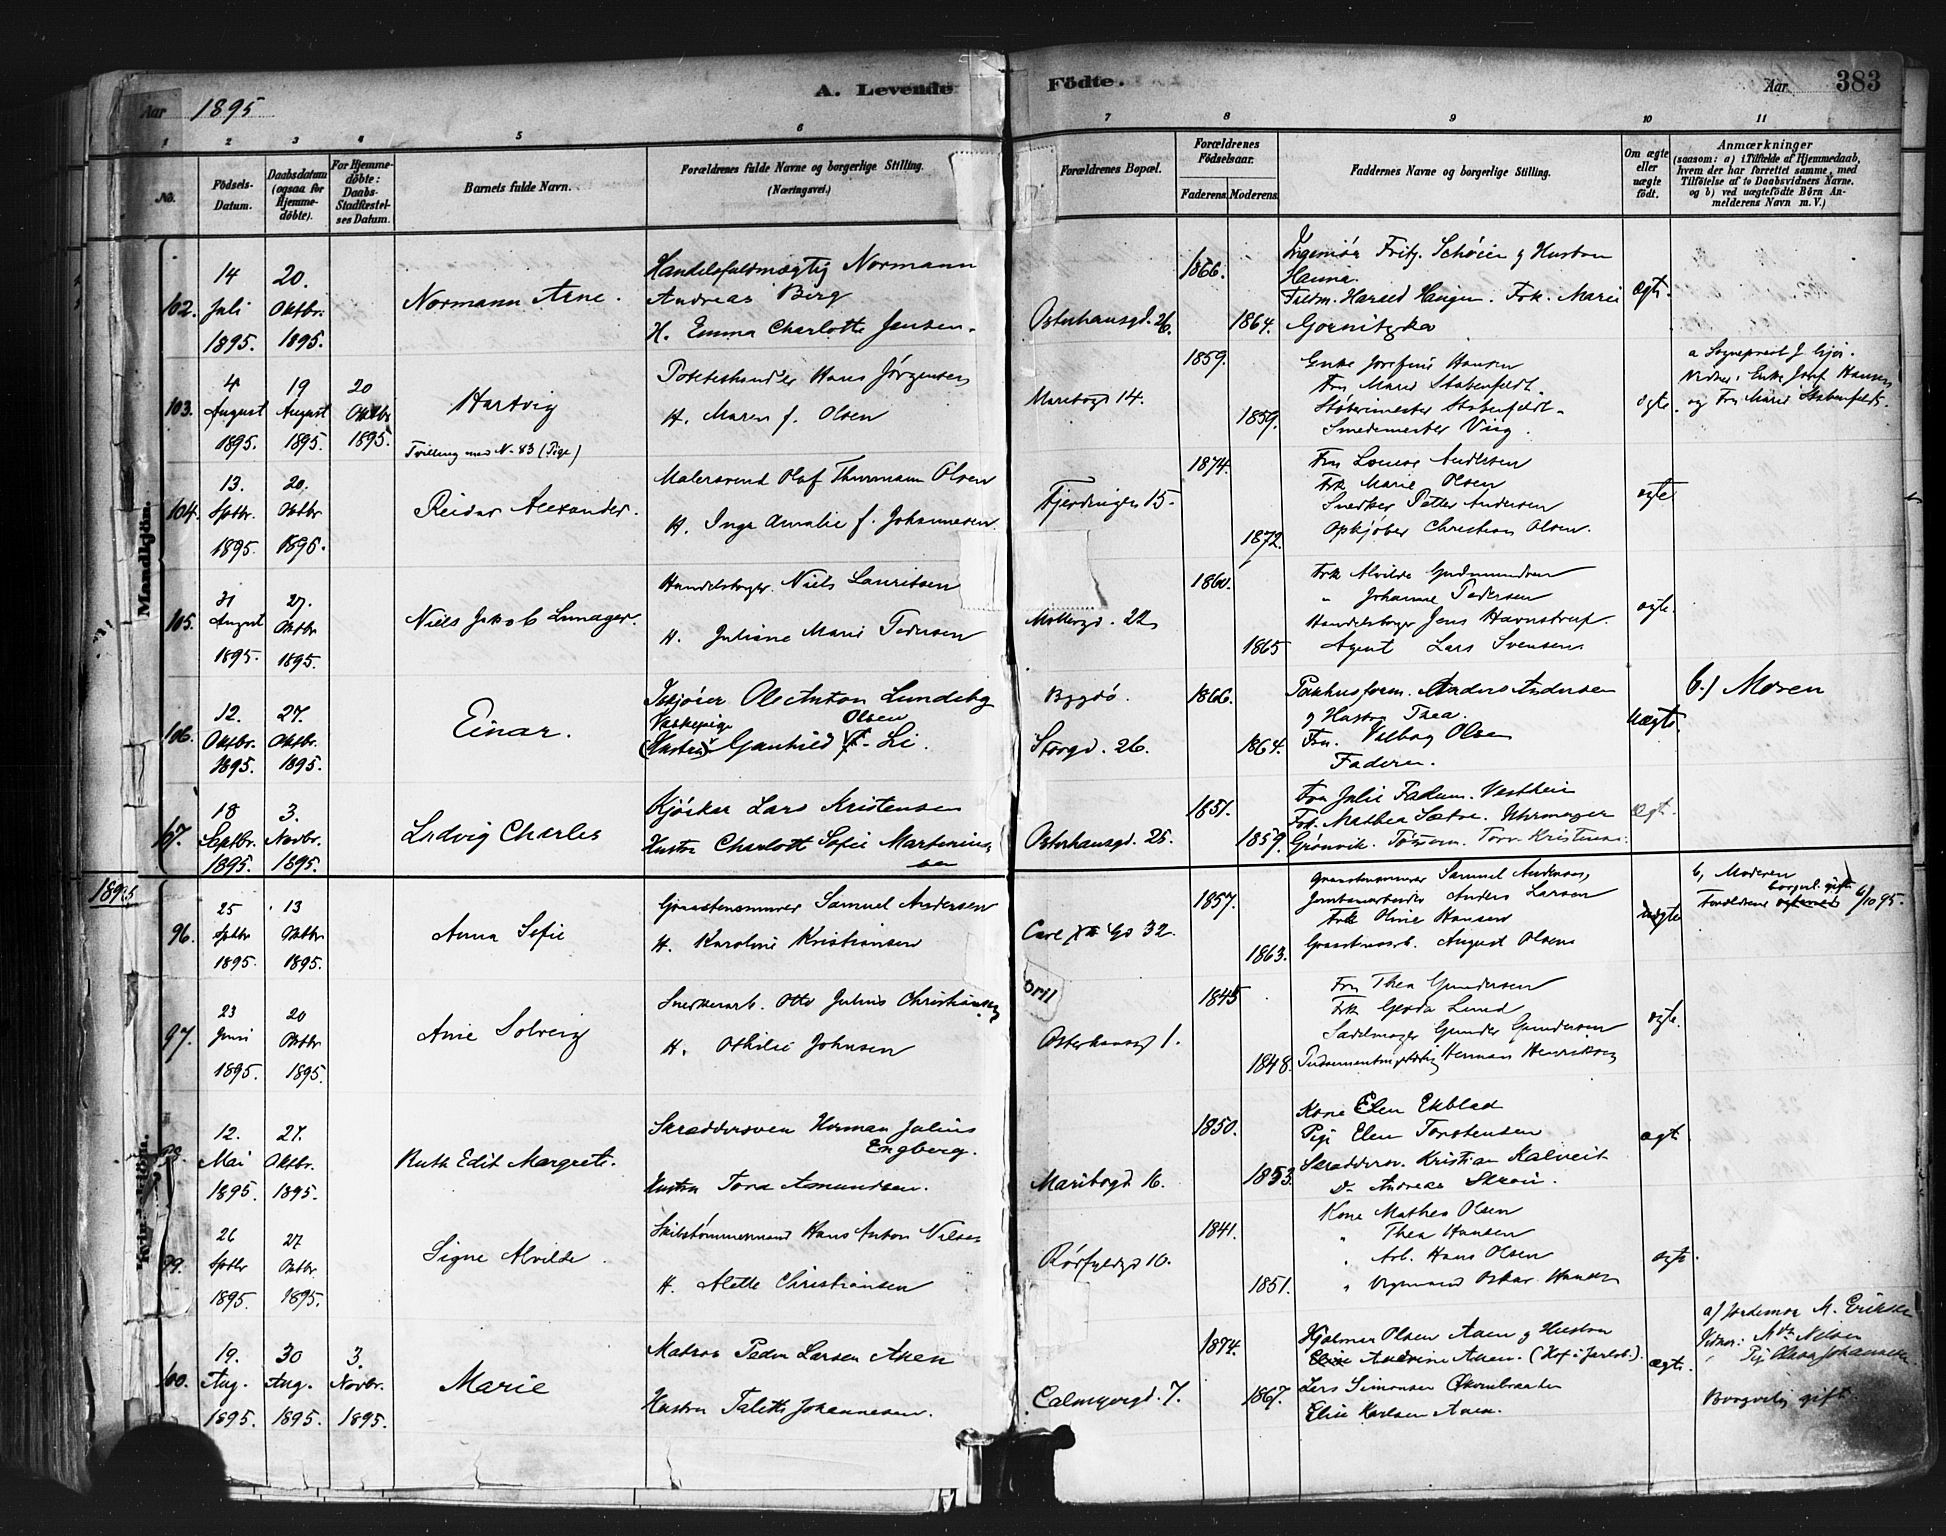 Aar 1895
A. Levende Födte.
Aar 383
1 2 3 4 5 6 7 8 9 10 11
No.
Födsels-Datum.
Daabsdatum (ogsaa for Hjemmedöbte).
For Hjemmedöbte: Daabs-Stadfæstelses Datum.
Barnets fulde Navn.
Forældrenes fulde Navne og borgerlige Stilling. (Næringsvei.)
Forældrenes Bopæl.
Forældrenes Födselsaar.
Faderens. Moderens.
Faddernes Navne og borgerlige Stilling.
Om ægte eller uægte födt.
Anmærkninger
(saasom: a) i Tilfælde af Hjemmedaab,
hvem der har forrettet samme, med
Tilföielse af to Daabsvidners Navne.
og b) ved uægtefödte Börn Anmelderens Navn m. V.)
Mandkjön.
102. 14 Juli 1895. 20. Oktbr. 1895.
Normann Arne.
Handelsfuldmægtig Normann
Andreas Berg
H. Emma Charlotte Jensen.
Osterhausgd. 26.
1866. 1864.
Ingeniör Fritz Schöien og Hustru
Hanna.
Gornitzka
ægte.
103. 4 August 1895 19 August 1895 20 Oktbr 1895.
Hartvig
Tvilling med N. 83 (Pige)
Potetshandler Hans Jörgensen
H. Maren f. Olsen
Maribogd 14.
1859. 1859.
Enke Josefine Hansen
Fru Marie Stabenfeldt.
Stöberimester Stabenfeldt.
Smedemester Viig.
ægte.
a Sogneprest J. Gjör.
Vidner: Enke Josef. Hansen
og Fru Marie Stabenfeldt.
104. 13. Sptbr. 1895. 20. Oktbr 1895.
Reidar Alexander.
Malersvend Olaf Thurmann Olsen
H. Inga Amalie f. Johannesen
Fjerdingen 15.
1874. 1872.
Fru Lovise Andersen
Frk Marie Olsen
Snedker Petter Andersen
Opkjöber Christian Olsen.
ægte
105. 31 August 1895. 27. Oktbr 1895.
Niels Jakob Lunager.
Handelsbager Niels Lauritsen
H. Juliane Marie Pedersen
Mollergd. 22
1860. 1865
Frk Alvilde Gudmundsen
" Johanne Pedersen
Handelsbager Jens Havnstrup.
Agent Lars Svensen
ægte.
106. 12. Oktbr. 1895. 27. Oktbr. 1895.
Einar.
Ole Anton Lundeby
Vaskepige Olsen
(Hustru) Gunhild f. Li.
Bygdö.
Storgd. 26.
1866. 1864.
Pakhusform. Anders Andersen
og Hustru Thea.
Fru. Valborg Olsen
Faderen.
Uægte.
b.) Moren
107. 18 Septbr. 1895. 3. Novbr. 1895.
Ludvig Charles
Kjörker Lars Kristensen
Hustru Charlott Sofie Martinius
sen
Osterhausgd. 25.
1851. 1859.
Fru Julie Fadum. Vestheim
Frk. Mathea Sætre. Uhrmager
Grönvik. Tors Kristensen.
Ægt.
1895
Kvindekjön.
96. 25 Sptbr 1895. 13 Oktbr 1895.
Anna Sofie
Samuel Andersen
H. Karoline Kristiansen
Carl XII Gd 32.
1857. 1863.
Samuel Andersen,
Anders Larsen
Frk Oline Hansen
August Olsen
uægte
b, Moderen
Forældrene borgerl. gift 6/10 95.
97. 23 Juni 1895. 20 Oktbr 1895.
Anne Solveig
Snedkerarb. Otto Julius Christiansen
H. Othilie Johnsen
Osterhausgd 1.
1845 1848.
Fru Thea Gundersen
Frk Gerda Lund
Sadelmager Gunder Gundersen
Herman Henriksen
ægte.
98. 12. Mai 1895. 27. Oktbr. 1895.
Ruth Edit Margrete.
Skræddersven Herman Julius
Engberg.
Hustru Tora Amundsen.
Maribogd 16.
1850. 1853.
Kone Elen Ekblad
Pige Elen Torstensen
Skræddersv. Kristian Kalveit
Do Andreas Skröi.
ægt
99. 26 Sptbr 1895. 27 Oktbr 1895.
Signe Alvilde
Skibstömmermand Hans Anton Nilsen
H. Alette Christiansen
Rörfyldgd 10.
1841. 1851.
Kone Mathea Olsen
" Thea Hansen
" Arb. Hans Olsen
" Vognmand Oskar Hansen
ægte
100. 19. Aug. 1895. 30 Aug. 1895. 3. Novbr. 1895.
Marie
Matros Peder Larsen Aaen
Hustru Talette Johannesen.
Calmeyergd. 7.
1874. 1867.
Hjalmar Olsen Aaen og Hustru
Andrine Aaen. (Hof i Jarlsb.).
Lars Simonsen
Elise Karlsen Aaen.
ægte.
a) Jordemor M. Eriksen
Vidner: Nilsen
Pige Johannesen
Borgerlig gift.